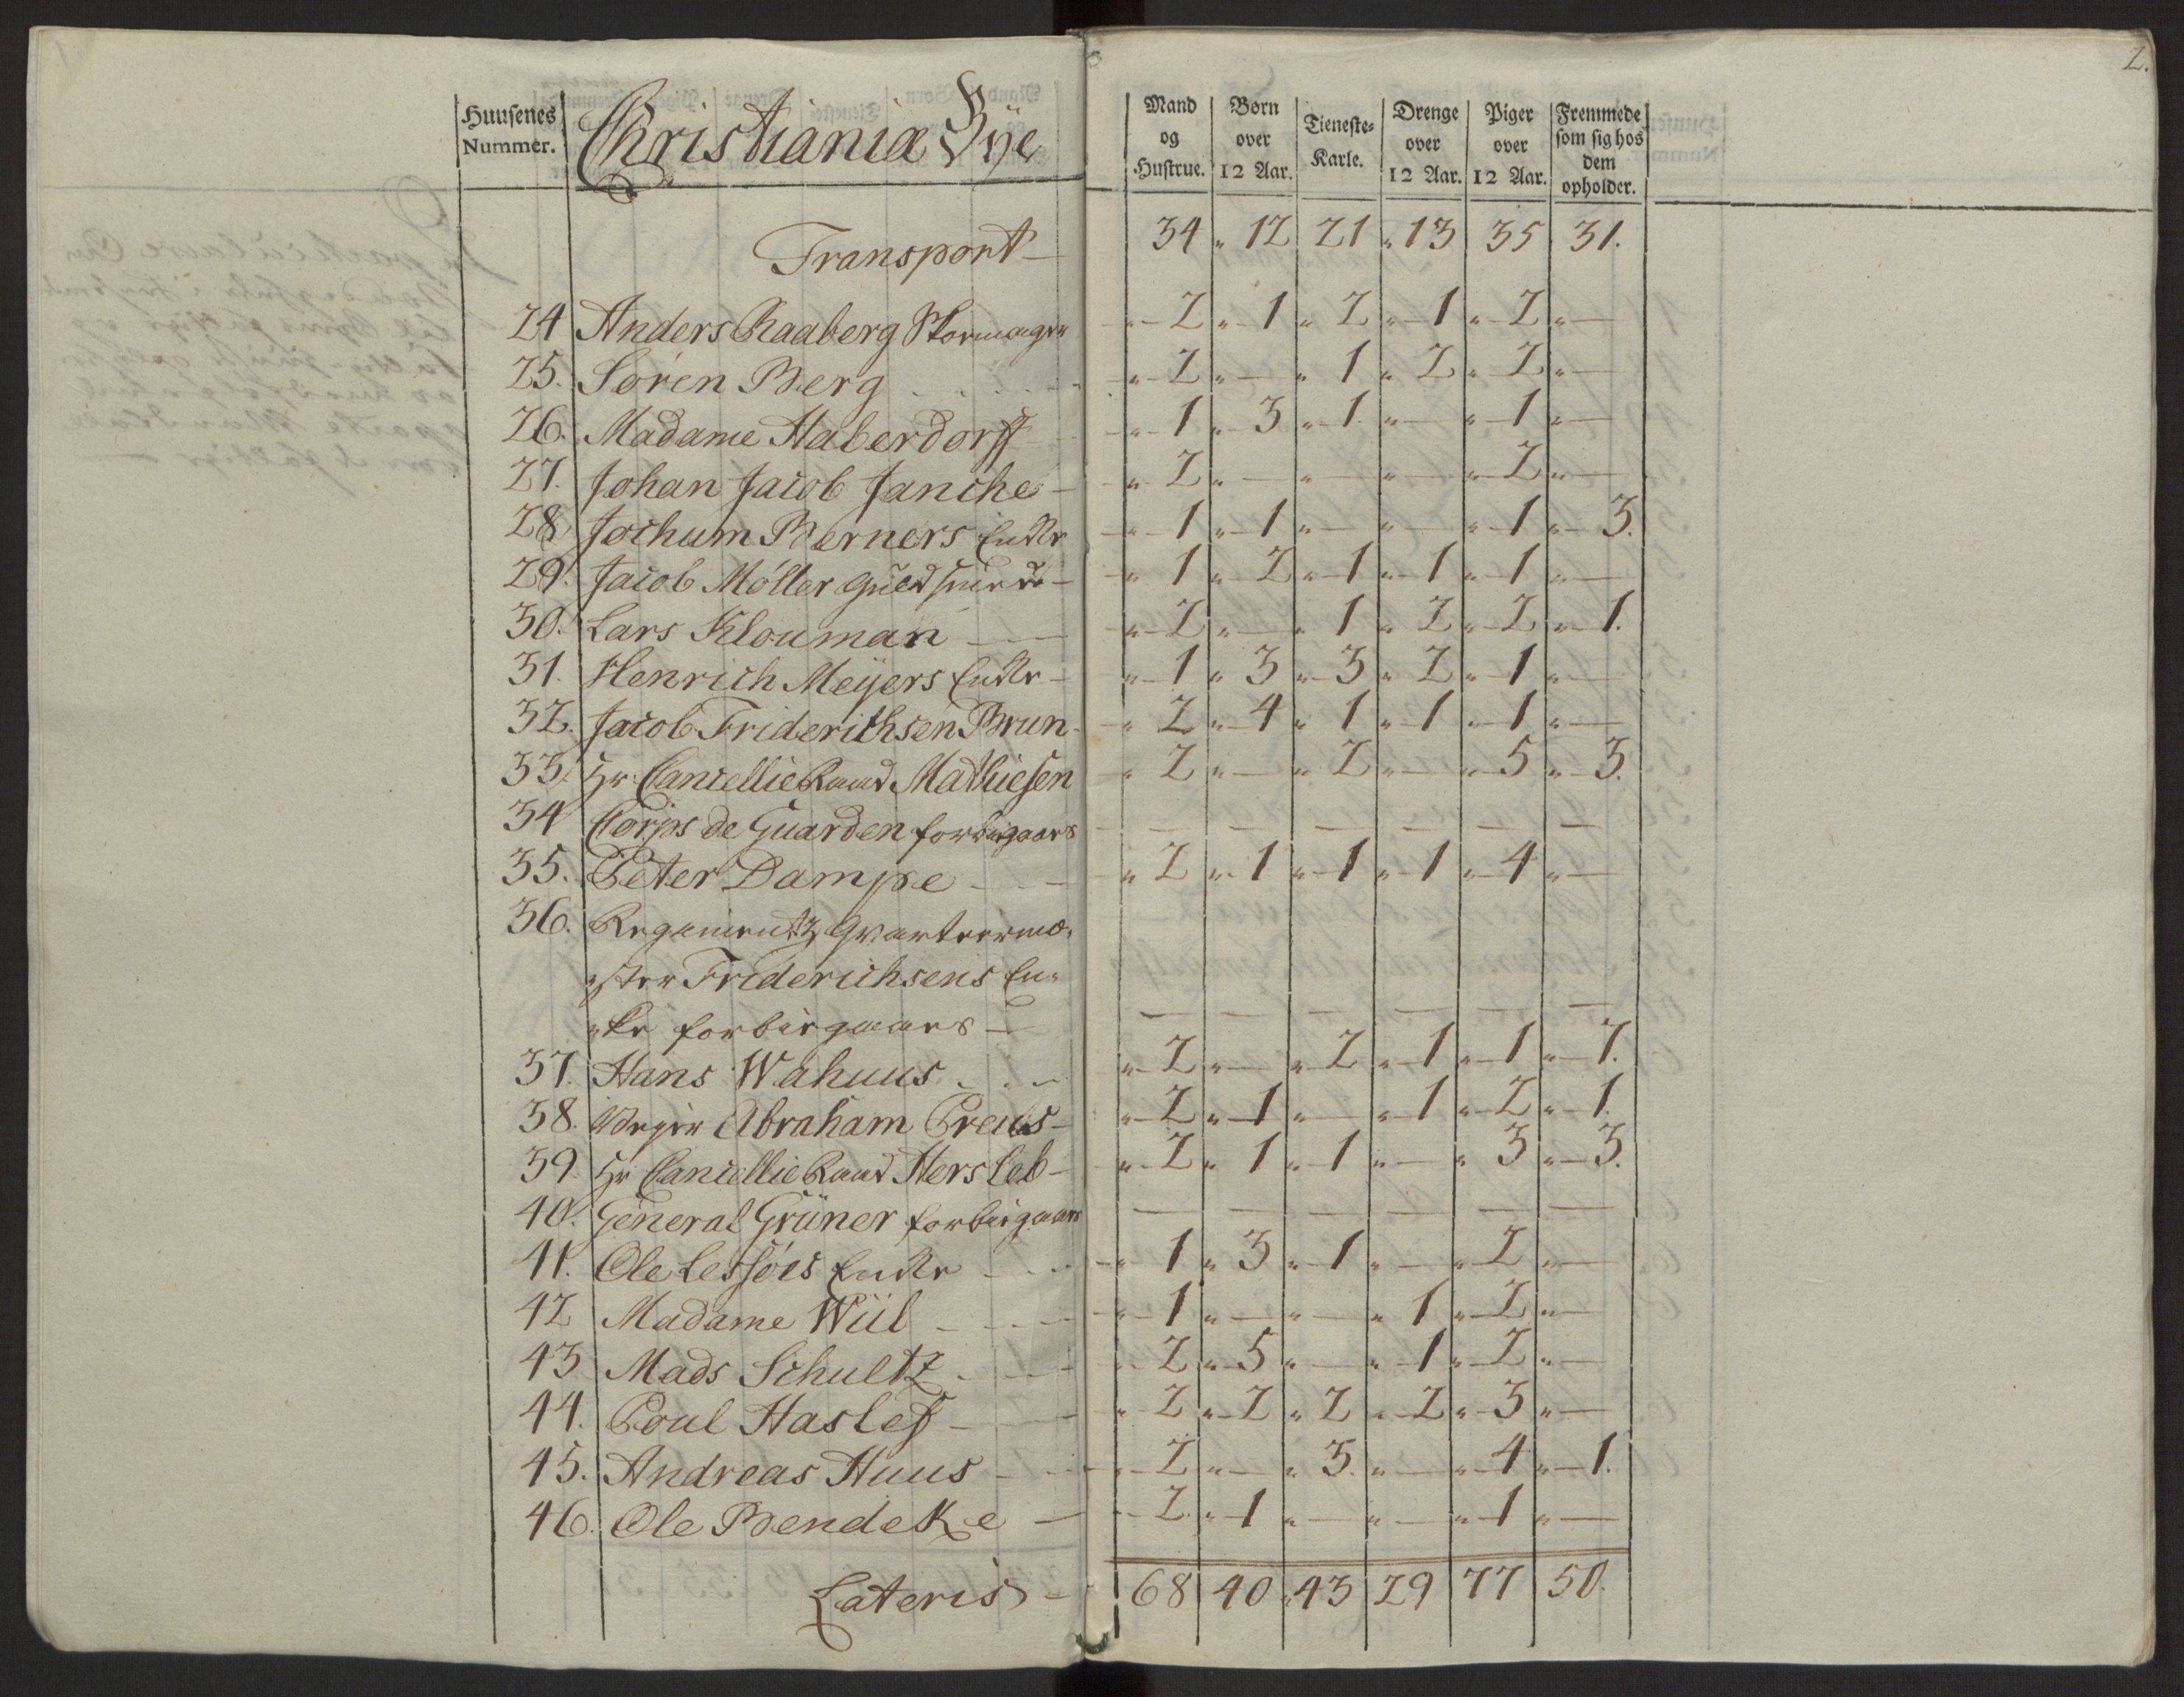 2.
Huusenes Nummer.
Christiania Bÿe
Mand og Hustrue. | Børn over 12 Aar. | Tieneste-Karle. | Drenge over 12 Aar. | Piger over 12 Aar. | Fremmede som sig hos dem opholder.
Transport — 34 " 12 21 " 13 35 31.
24 Anders Raaberg " 2 " 1 " 2 " 1 " 2 " —
25. Søren Berg " 2 " — " 1 " 2 " 2 " —
26. Madame Haberdorff " 1 " 3 " 1 " — " 1 " —
27. Johan Jacob Janche — " 2 " — " — " — " 2 " —
28 Jochum Berners Enke " 1 " 1 " — " — " 1 " 3.
29. Jacob Møller Guldsmed — " 1 " 2 " 1 " 1 " 1 " —
30. Lars Klouman — " 2 " — " 1 " 2 " 2 " 1.
31. Henrich Meÿers Enke — " 1 " 3 " 3 " 2 " 1 " —
32. Jacob Friderichsen Brun " 2 " 4 " 1 " 1 " 1 " —
33. Hr: Cancellie Raad Mathiesen " 2 " — " 2 " — " 5 " 3.
34 Corps de Guarden forbigaaes — — — — — —
35. Peter Dampe — " 2 " 1 " 1 " 1 " 4 " —
36. Regiments Qvarteerme-
ster Friderichsens En-
ke forbigaaes — — — — — — —
37. Hans Wahuus " 2 " — " 2 " 1 " 1 " 7.
38. Abraham Preus — " 2 " 1 " — " 1 " 2 " 1.
39. Hr Cancellie Raad Hersleb — " 2 " 1 " 1 " — " 3 " 3.
40. General Grüner forbigaaes — — — — — —
41. Ole Lessøes Enke — " 1 " 3 " 1 " — " 2 " —
42 Madame Wiil — " 1 " — " — " 1 " 2 " —
43 Mads Schultz " 2 " 5 " — " 1 " 2 " —
44. Poul Haslef — " 2 " 2 " 2 " 2 " 3 " —
45. Andreas Huus — " 2 " — " 3. " — " 4 " 1.
46. Ole Bendeke — " 2. " 1 " — " — " 1 " —
Lateris — 68 40 43 29 77 50.